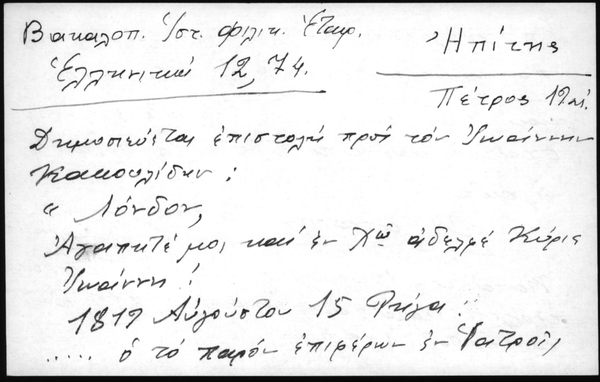 Βακαλοπ. Ἱστ. φιλικ. Ἑταιρ.
Ἑλληνικά 12, 74.
Ἠπίτης
Πέτρος
Δημοσιεύεται ἐπιστολή πρός τόν Ἰωάννην
Κακουλίδην :
" Λόνδον,
Ἀγαπητέ μοι καί ἐν Χῶ ἀδελφέ Κύριε
Ἰωάννη!
1819 Αὐγούστου 15 Ρήγα :
..... ὁ τό παρόν ἐπιφέρων ἐν Ἰατροῖς